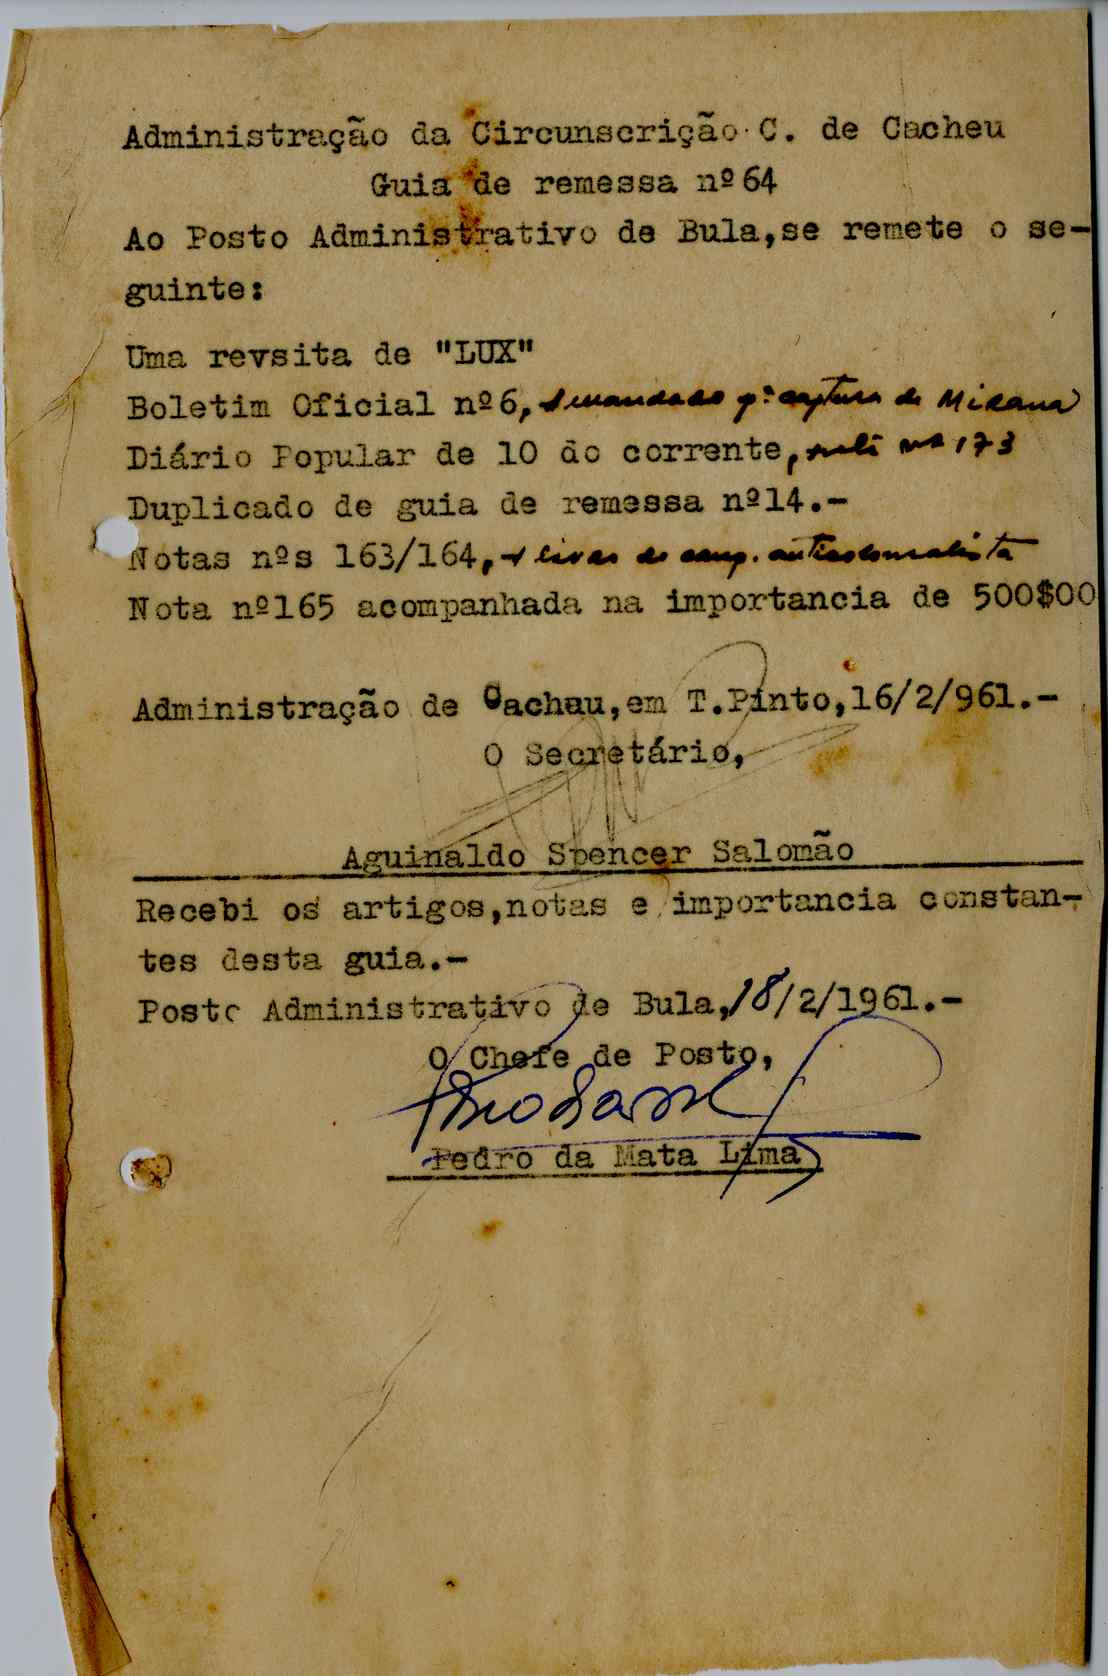 Administração da Circunscrição C. de Cacheu
Guia de remessa nº 64
Ao Posto Administrativo de Bula,se remete o se-
guinte:
Uma revsita de "LUX"
Boletim Oficial nº6, mandado pª captura de
Diário Popular de 10 do corrente, nº 173
Duplicado de guia de remessa nº14.-
Notas nºs 163/164, de camp. anticolonialista
Nota nº165 acompanhada na importancia de 500$00
Administração de Cachau,em T.Pinto,16/2/961.-
O Secretário,
Aguinaldo Spencer Salomão
Recebi os artigos,notas e importancia constan-
tes desta guia.-
Posto Administrativo de Bula,18/2/1961.-
O Chefe de Posto,
Pedro da Mata Lima